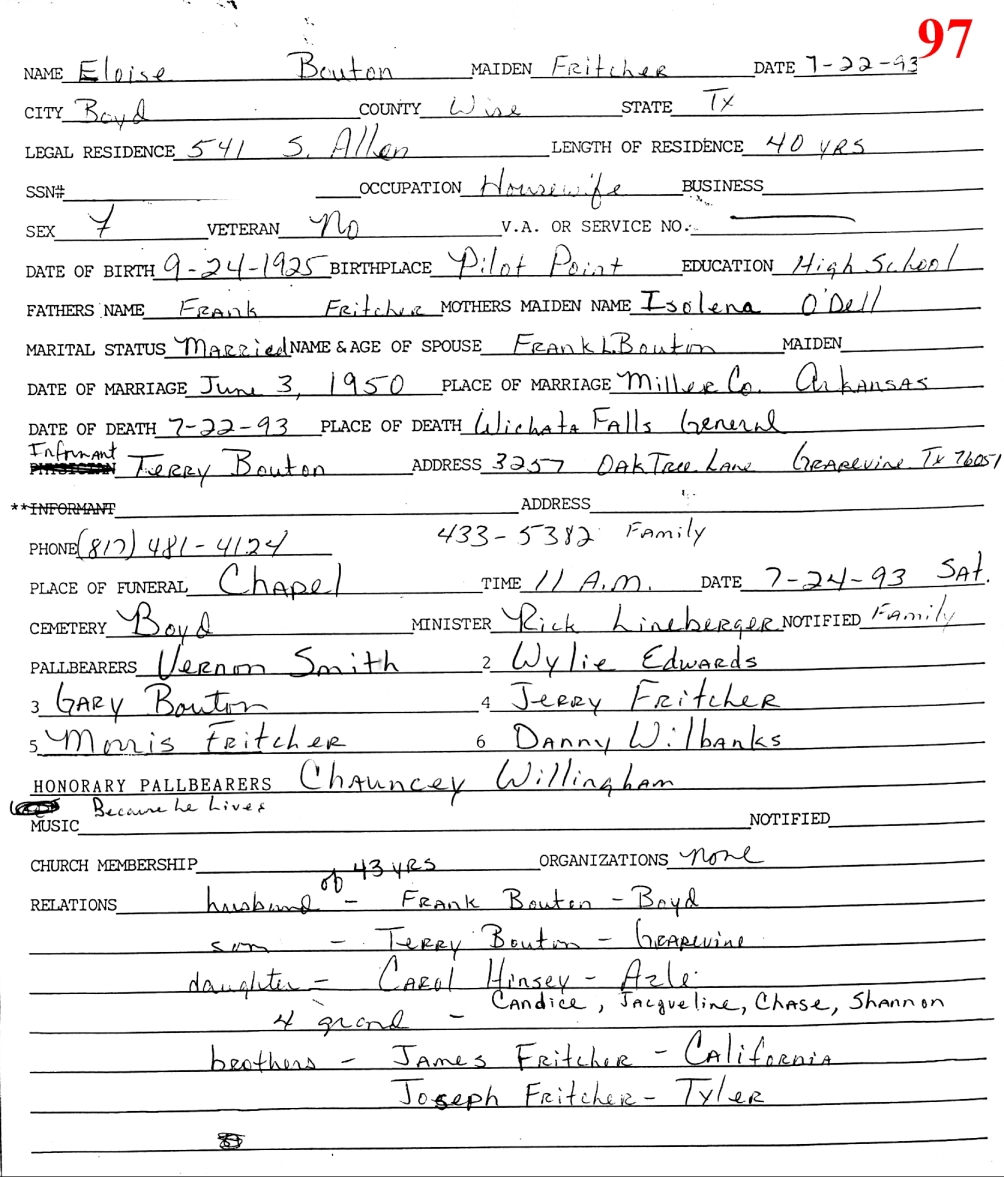 97
NAME Eloise Bouton MAIDEN Fritcher DATE 7-22-93
CITY Boyd COUNTY Wise STATE Tx
LEGAL RESIDENCE 541 S. Allen LENGTH OF RESIDENCE 40 YRS
SSN# OCCUPATION Housewife BUSINESS
SEX F VETERAN No V.A. OR SERVICE NO.
DATE OF BIRTH 9-24-1925 BIRTHPLACE Pilot Point EDUCATION High School
FATHERS NAME Frank Fritcher MOTHERS MAIDEN NAME Isolena O'Dell
MARITAL STATUS Married NAME & AGE OF SPOUSE Frank L. Bouton MAIDEN
DATE OF MARRIAGE June 3, 1950 PLACE OF MARRIAGE Miller Co. Arkansas
DATE OF DEATH 7-22-93 PLACE OF DEATH Wichata Falls General
Informant
PHYSICIAN Terry Bouton ADDRESS 3257 Oak Tree Lane Grapevine Tx 76051
**INFORMANT ADDRESS
PHONE (817) 481-4124 433-5382 Family
PLACE OF FUNERAL Chapel TIME 11 A.M. DATE 7-24-93 Sat.
CEMETERY Boyd MINISTER Rick Lineberger NOTIFIED Family
PALLBEARERS Vernon Smith 2 Wylie Edwards
3 Gary Bouton 4 Jerry Fritcher
5 Morris Fritcher 6 Danny Wilbanks
HONORARY PALLBEARERS Chauncey Willingham
Because he Lives
MUSIC NOTIFIED
CHURCH MEMBERSHIP ORGANIZATIONS none
of 43 YRS
RELATIONS husband - Frank Bouton - Boyd
son - Terry Bouton - Grapevine
daughter - Carol Hinsey - Azle
4 grand - Candice, Jacqueline, Chase, Shannon
brothers - James Fritcher - California
Joseph Fritcher - Tyler